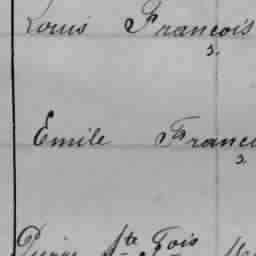 Louis François
s.
Emile Franco
s.
Pierre Ste Fois